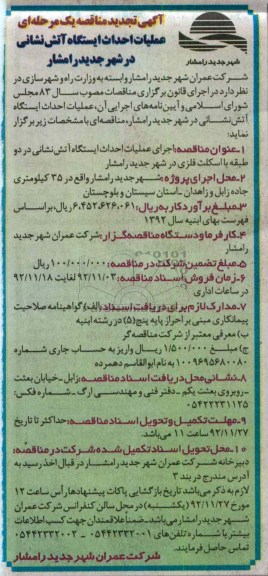 آگهی تجدید مناقصه یک مرحله‌ای
عملیات احداث ایستگاه آتش نشانی
در شهر جدید رامشار
شهر جدید رامشار
شرکت عمران شهر جدید رامشار وابسته به وزارت راه و شهرسازی در
نظر دارد در اجرای قانون برگزاری مناقصات مصوب سال ۸۳ مجلس
شورای اسلامی و آیین نامه‌های اجرایی آن، عملیات احداث ایستگاه
آتش نشانی در شهر جدید رامشار، مناقصه‌ای با مشخصات زیر برگزار
نماید:
۱-عنوان مناقصه: اجرای عملیات احداث ایستگاه آتش نشانی در دو
طبقه با اسکلت فلزی در شهر جدید رامشار
۲-محل اجرای پروژه: شهر جدید رامشار واقع در ۳۵ کیلومتری
جاده زابل و زاهدان - استان سیستان و بلوچستان
۳-مبلغ برآورد کار به ریال: ۶،۴۵۲،۶۲۶،۰۶۱ ریال، براساس
فهرست بهای ابنیه سال ۱۳۹۲
۴-کارفرما و دستگاه مناقصه گزار: شرکت عمران شهر جدید
رامشار
۵-مبلغ تضمین شرکت در مناقصه: ۱۰۰/۰۰۰/۰۰۰ ریال
۶-زمان فروش اسناد مناقصه: ۹۲/۱۱/۰۳ لغایت ۹۲/۱۱/۱۸
در ساعات اداری
۷-مدارک لازم برای دریافت اسناد: الف) گواهینامه صلاحیت
پیمانکاری مبنی بر احراز پایه پنج (۵) در رشته ابنیه
ب) معرفی نامه معتبر از شرکت مناقصه گر
ج) مبلغ ۱/۵۰۰/۰۰۰ ریال واریز به حساب جاری شماره
۱۰۰۹۶۹۵۶۸۰۰۸۰ به نام ابوالقاسم دهمرده
۸-نشانی محل دریافت اسناد مناقصه: زابل - خیابان بعثت
- روبروی بعثت یکم - دفتر فنی و مهندسی ارگ - شماره فکس:
۰۵۴۲۲۲۳۱۱۲۵
۹-مهلت تکمیل و تحویل اسناد مناقصه: حداکثر تا تاریخ
۹۲/۱۱/۲۷ ساعت ۱۱ می‌باشد.
۱۰-محل تحویل اسناد تکمیل شده شرکت در مناقصه:
دبیرخانه شرکت عمران شهر جدید رامشار در قبال اخذ رسید به
آدرس مندرج در بند ۳
لازم به ذکر می‌باشد تاریخ بازگشایی پاکات پیشنهادها رأس ساعت ۱۲
مورخ ۹۲/۱۱/۲۷ (یکشنبه) در محل سالن کنفرانس شرکت عمران
شهر جدید رامشار می‌باشد. ضمناً علاقمندان جهت کسب اطلاعات
بیشتر با شماره تلفن‌های ۰۵۴۴۲۳۳۲۰۰۱ - ۰۵۴۴۲۳۳۲۰۰۲
تماس حاصل فرمایند.
شرکت عمران شهر جدید رامشار